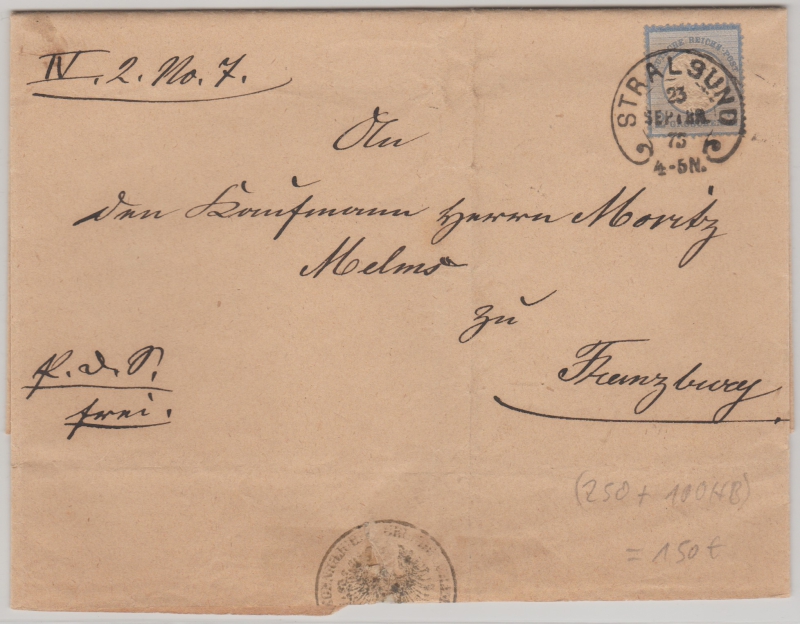 IV. 2. No. 7.
STRALSUND
23
SEPTBR.
75
4-5N.
An
den Kaufmann Herrn Moritz
Melms
zu
Franzburg
P. d. S.
frei.
(250 + 100HB)
= 150€